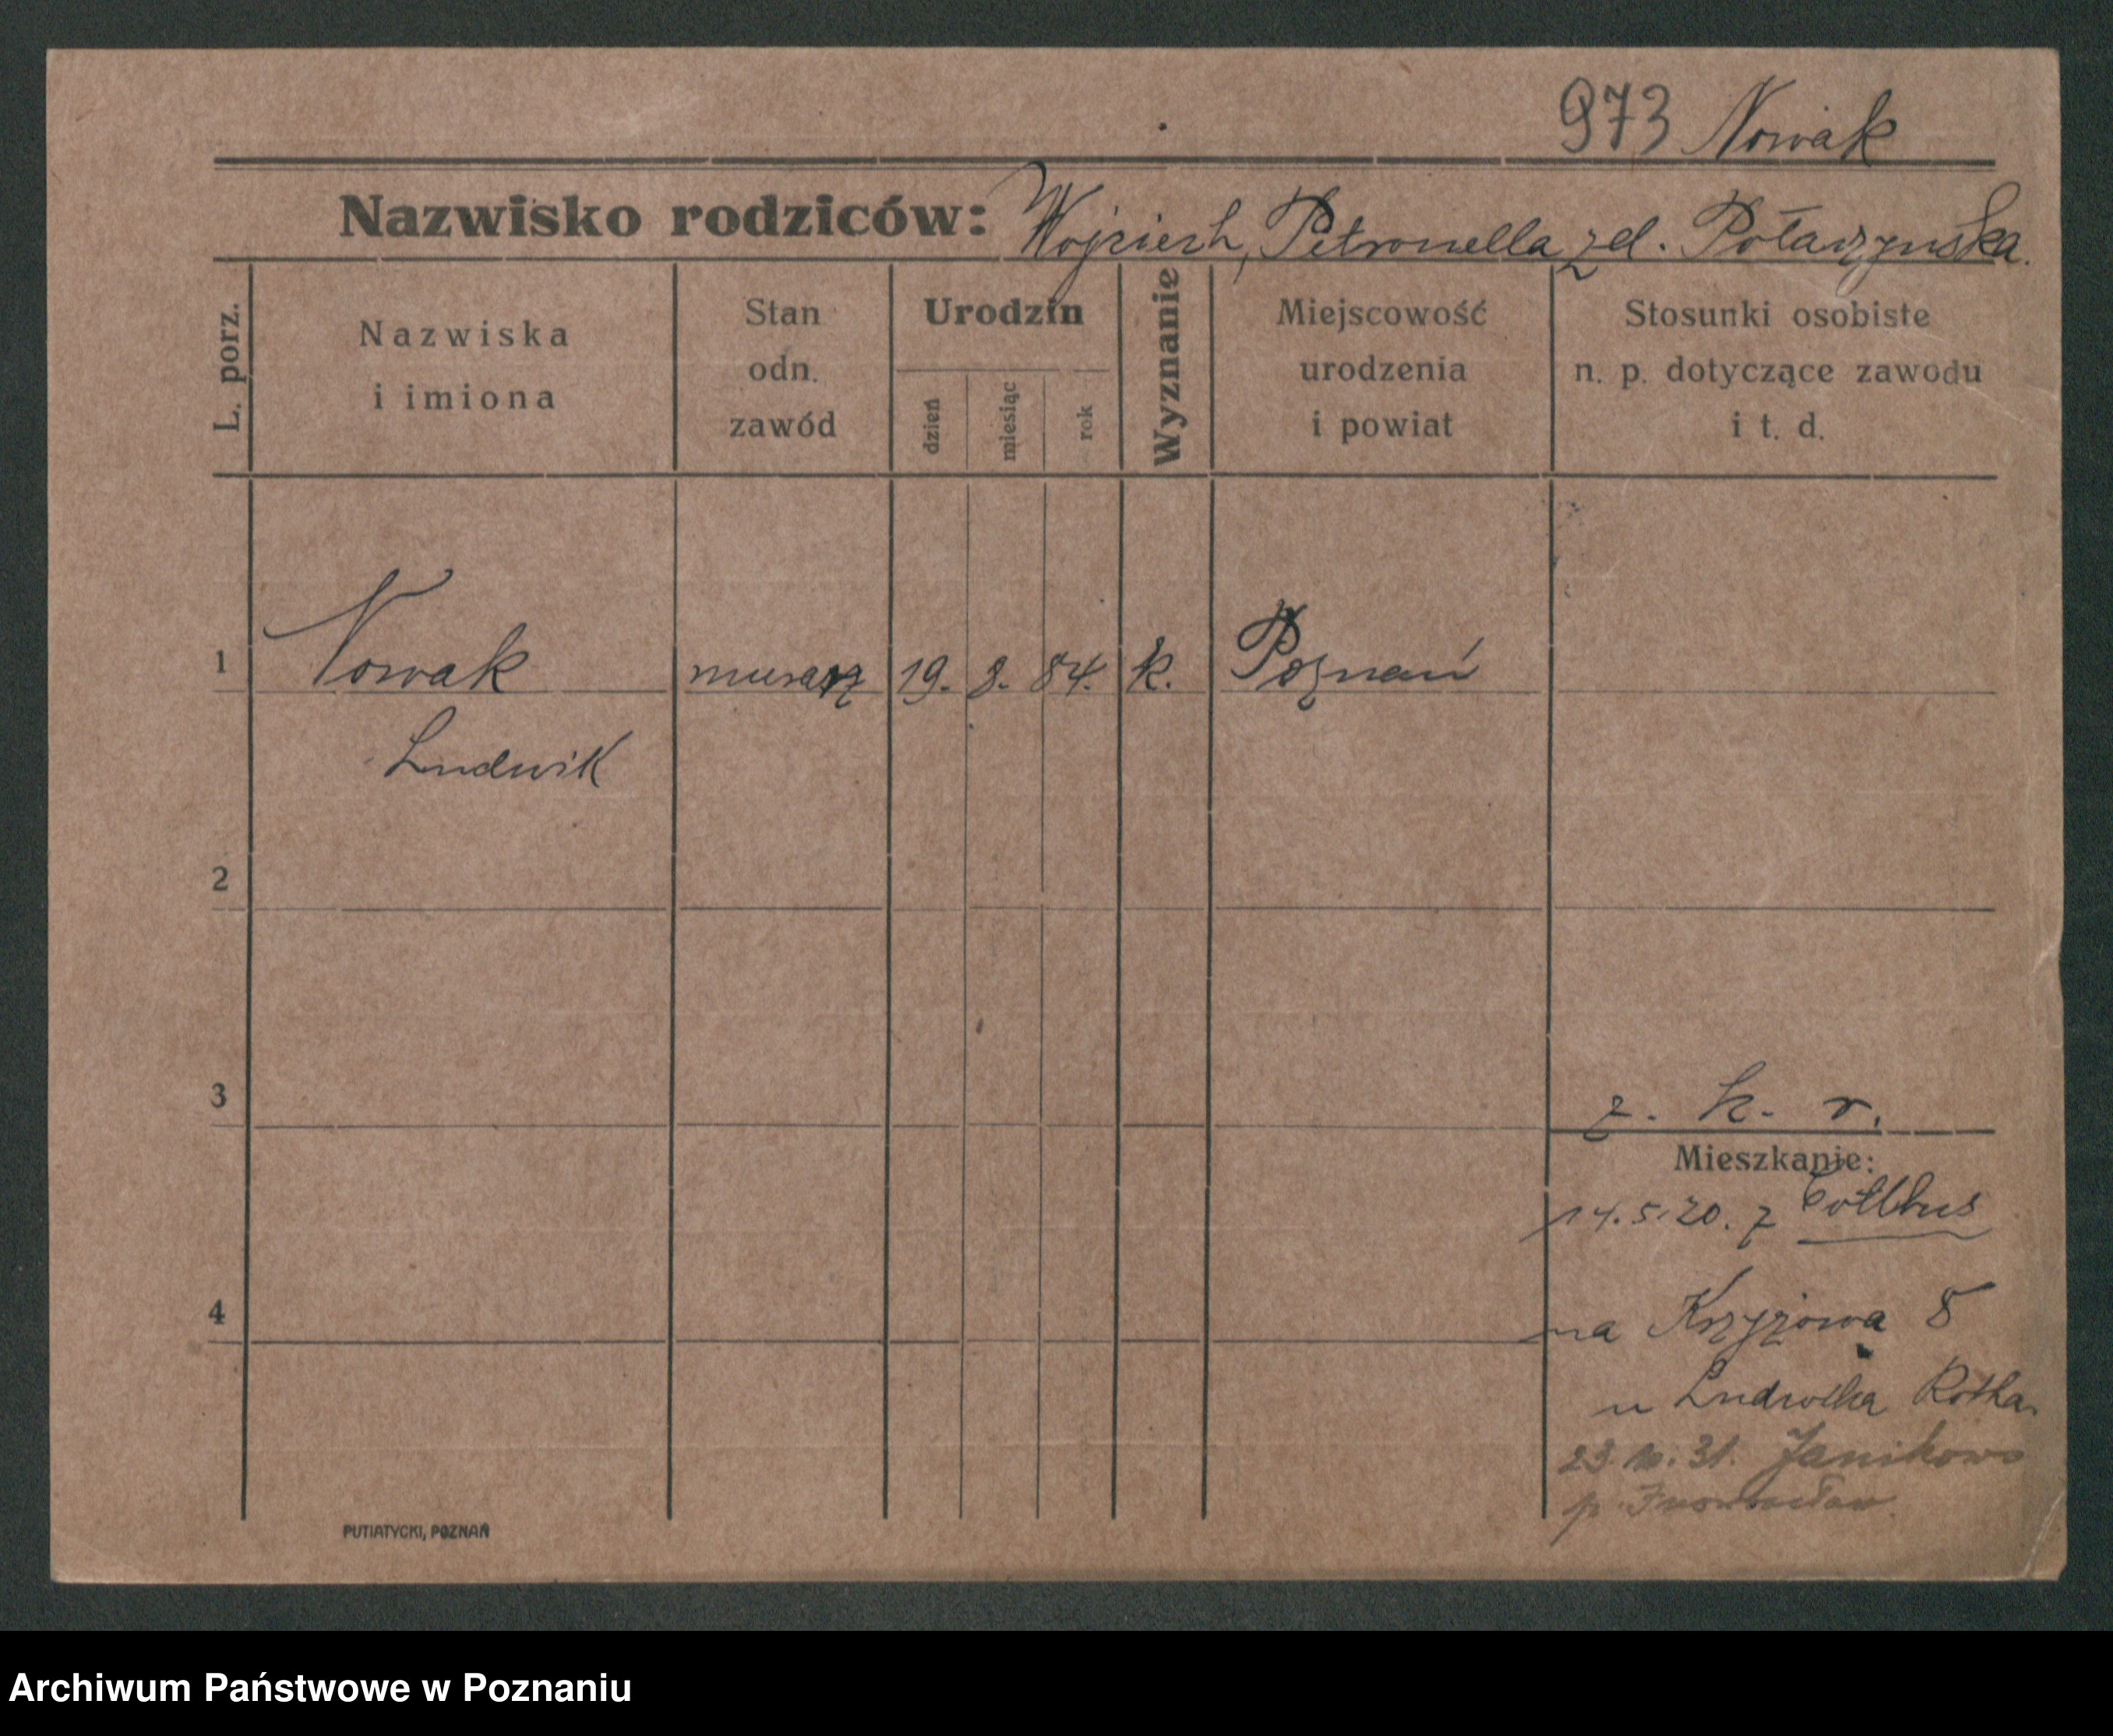 973 Nowak
Nazwisko rodziców: Wojciech, Petronella zd. Potarzynska.
L. porz.
Nazwiska
i imiona
Stan
odn.
zawód
Urodzin
dzień
miesiąc
rok
Wyznanie
Miejscowość
urodzenia
i powiat
Stosunki osobiste
n. p. dotyczące zawodu
i t. d.
1 Nowak murarz 19. 8. 84. k. Poznań
Ludwik
2
3
z. k. r.
Mieszkanie:
14.5.20. z Cottbus
4
na Krzyżowa 8
u Ludwika
23.10.31. Janikowo
p. Inowrocław
PUTIATYCKI, POZNAŃ
Archiwum Państwowe w Poznaniu